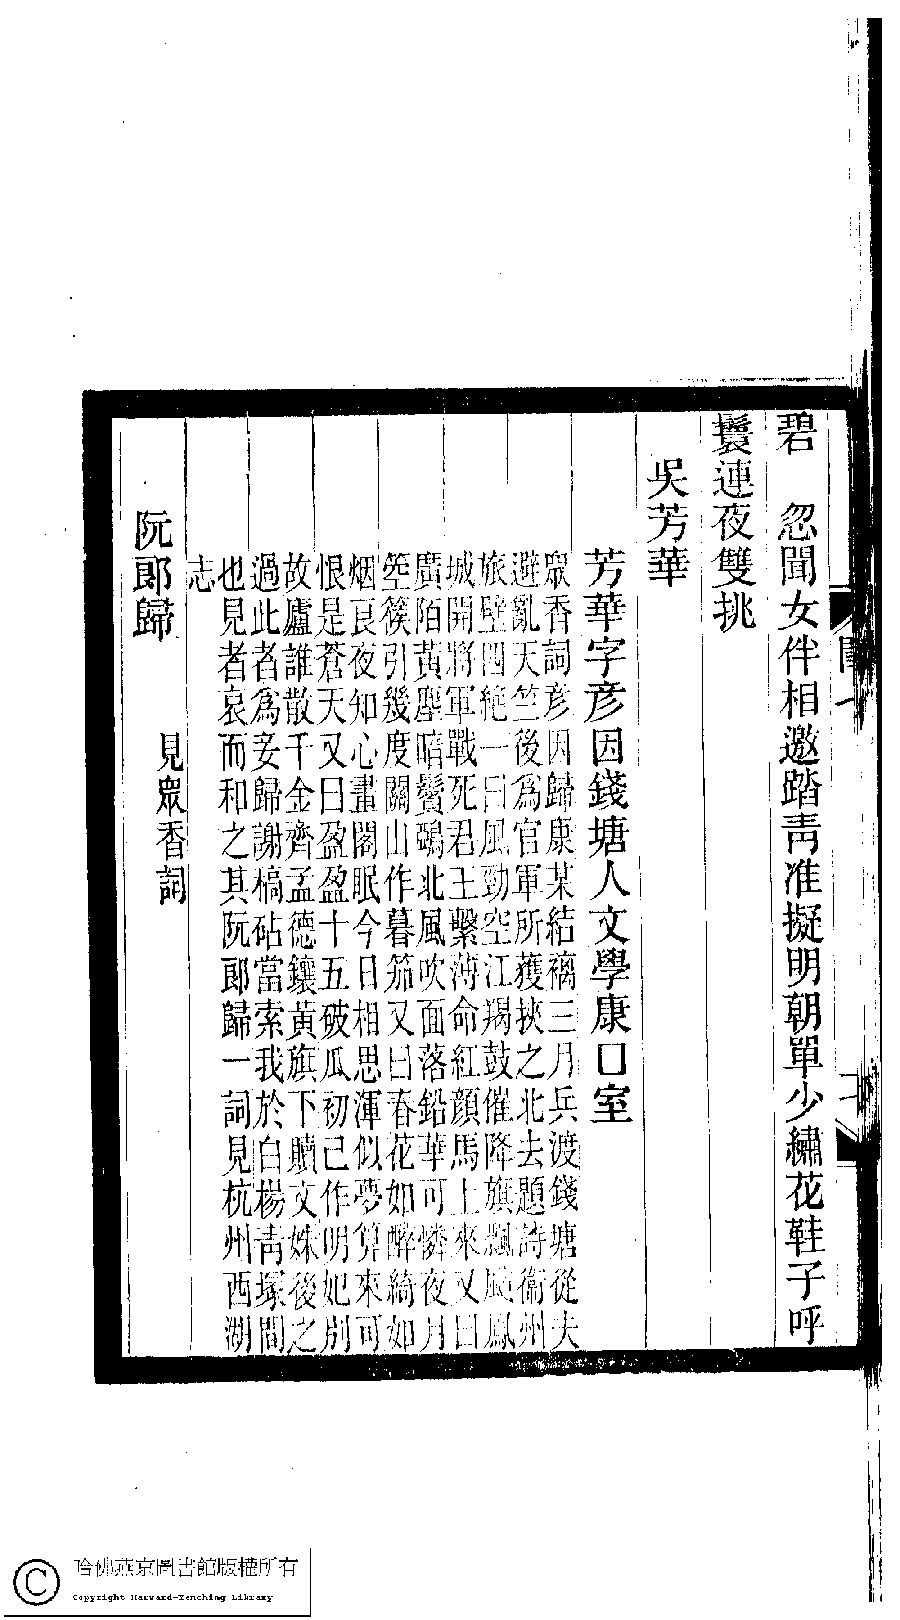 碧　忽聞女伴相邀踏靑准擬明朝單少繡花鞋子呼
鬟連夜雙挑
吳芳華
芳華字彥因錢塘人文學康囗室
眾香詞彥因歸康某結褵三月兵渡錢塘從夫
避亂天竺後爲官軍所獲挾之北去題詩衞州
旅壁四絶一曰風勁空江羯鼓催降旗飄颭鳳
城開將軍戰死君王繫薄命紅顔馬上來又曰
廣陌黃塵暗鬢鴉北風吹面落鉛華可憐夜月
箜篌引幾度關山作暮笳又曰春花如醉綺如
烟良夜知心畫閣眠今日相思渾似夢算來可
恨是蒼天又曰盈盈十五破瓜初已作明妃別
故廬誰散千金齊孟德鑲黃旗下贖文姝後之
過此者爲妾歸謝槁砧當索我於白楊靑塚間
也見者哀而和之其阮郞歸一詞見杭州西湖
志
阮郞歸　見眾香詞
哈佛燕京圖書館版權所有
Copyright Harvard-Yenching Library